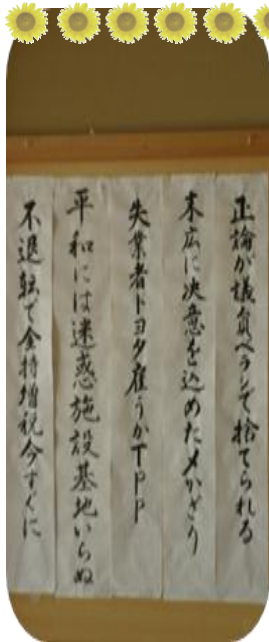 正論が議員ペラシで捨てられる
末広に決意を込めた〆かざり
失業者トヨタ雇うかTPP
平和には迷惑施設基地いらぬ
不退転で金持増税今すぐに